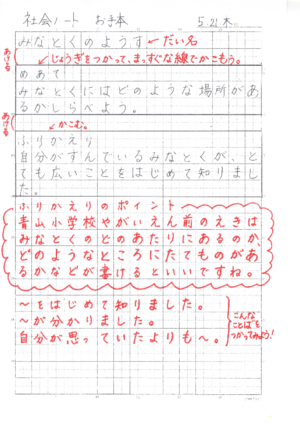 社会ノート お手本 5/21 木
みなとくのようす ←だい名
あける
←じょうぎをつかって、まっすぐな線でかこもう。
めあて
みなとくにはどのような場所があ
るかしらべよう。
あける
←かこむ。
ふりかえり
自分がすんでいるみなとくが、と
ても広いことをはじめて知りまし
た。
ふりかえりのポイント
青山小学校やがいえん前のえきは
みなとくのどのあたりにあるのか、
どのようなところにたてものがあ
るかなどが書けるといいですね。
～をはじめて知りました。
～が分かりました。
自分が思っていたよりも～。
こんな
ことばを
つかってみよう！